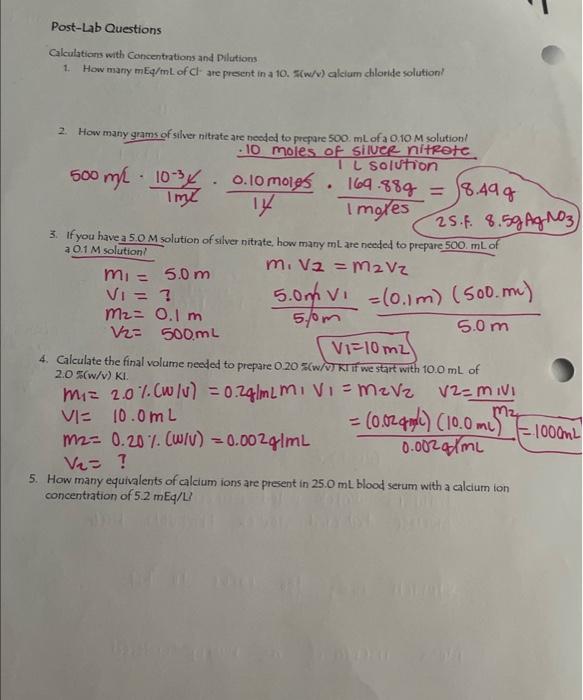 Post-Lab Questions
Calculations with Concentrations and Dilutions
1. How many mEq/mL of Cl⁻ are present in a 10. %(w/v) calcium chloride solution?
2. How many grams of silver nitrate are needed to prepare 500. mL of a 0.10 M solution?
.10 moles of silver nitrate
1 L solution
500 mL · 10⁻³ L / 1 mL · 0.10 moles / 1 L · 169.88g / 1 moles = 8.49g
2 S.F. 8.5g AgNO3
3. If you have a 5.0 M solution of silver nitrate, how many mL are needed to prepare 500. mL of
a 0.1 M solution?
m1 = 5.0 m
m1 V2 = m2V2
V1 = ?
5.0m V1 / 5.0m = (0.1m) (500. mL) / 5.0 m
m2 = 0.1 m
V2 = 500mL
V1 = 10 mL
4. Calculate the final volume needed to prepare 0.20 %(w/v) KI if we start with 10.0 mL of
2.0 %(w/v) KI.
m1 = 2.0 %. (w/v) = 0.2g/mL m1 V1 = m2V2 V2 = m1V1 / m2
V1 = 10.0 mL
= (0.02g/mL) (10.0 mL) / 0.002g/mL = 1000mL
m2 = 0.20 %. (w/v) = 0.002g/mL
V2 = ?
5. How many equivalents of calcium ions are present in 25.0 mL blood serum with a calcium ion
concentration of 5.2 mEq/L?